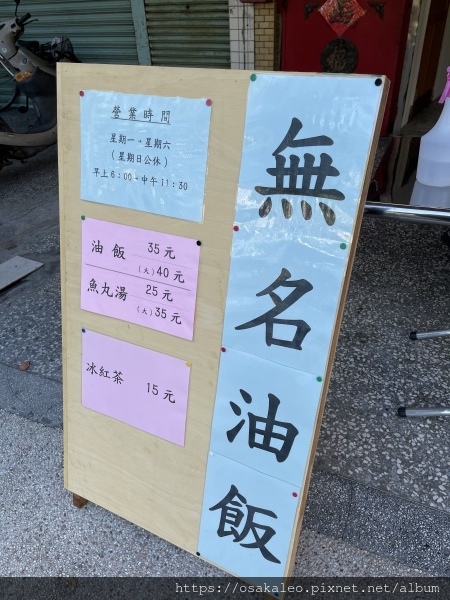 無名油飯
營業時間
星期一~星期六
(星期日公休)
早上6:00~中午11:30
油飯 35元
(大)40元
魚丸湯 25元
(大)35元
冰紅茶 15元
https://osakaleo.pixnet.net/album